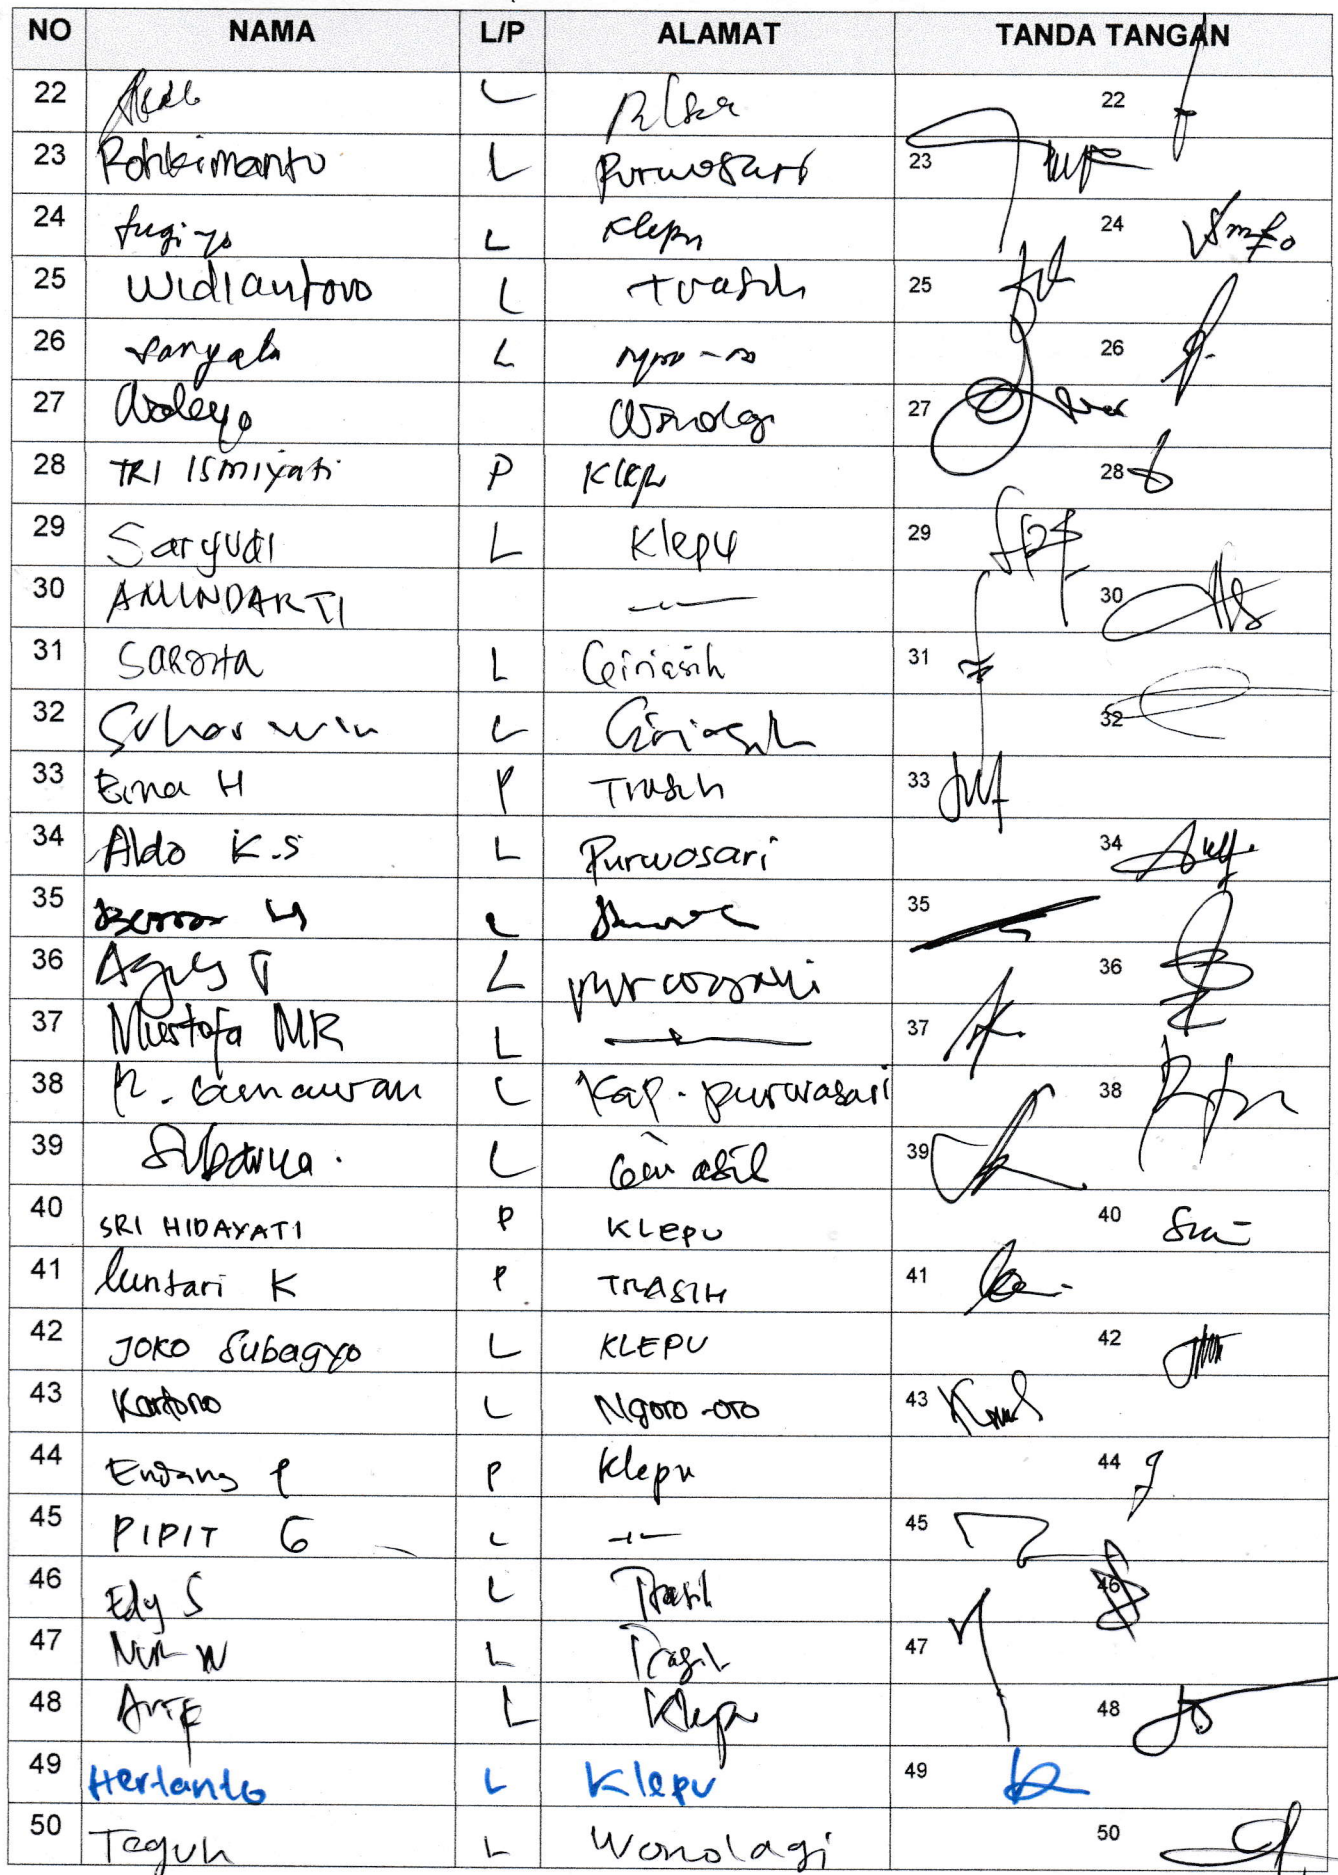 NO NAMA L/P ALAMAT TANDA TANGAN
22 L 22
23 Rohkimanto L Purwosari 23
24 Sugiyo L Klepu 24
25 Widiantoro L Trasih 25
26 L 26
27 Waleyo Wonolagi 27
28 TRI ISmiyati P Klepu 28
29 Saryudi L Klepu 29
30 AMINDARTI 30
31 L Giriasih 31
32 Suharwin L Giriasih 32
33 Erna H P Trasih 33
34 Aldo K.S L Purwosari 34
35 L 35
36 Agus T L purwosari 36
37 Mustofa MR L 37
38 R. Gunawan L Kap. purwasari 38
39 Subarna. L Giriasih 39
40 SRI HIDAYATI P KLEPU 40
41 luntari K P TRASIH 41
42 JOKO Subagyo L KLEPU 42
43 Kartono L Ngoro-oro 43
44 Endang P P Klepu 44
45 PIPIT G L 45
46 Edy S L Trasih 46
47 Nur W L Trasih 47
48 Arif L Klepu 48
49 Hertanto L Klepu 49
50 Teguh L Wonolagi 50